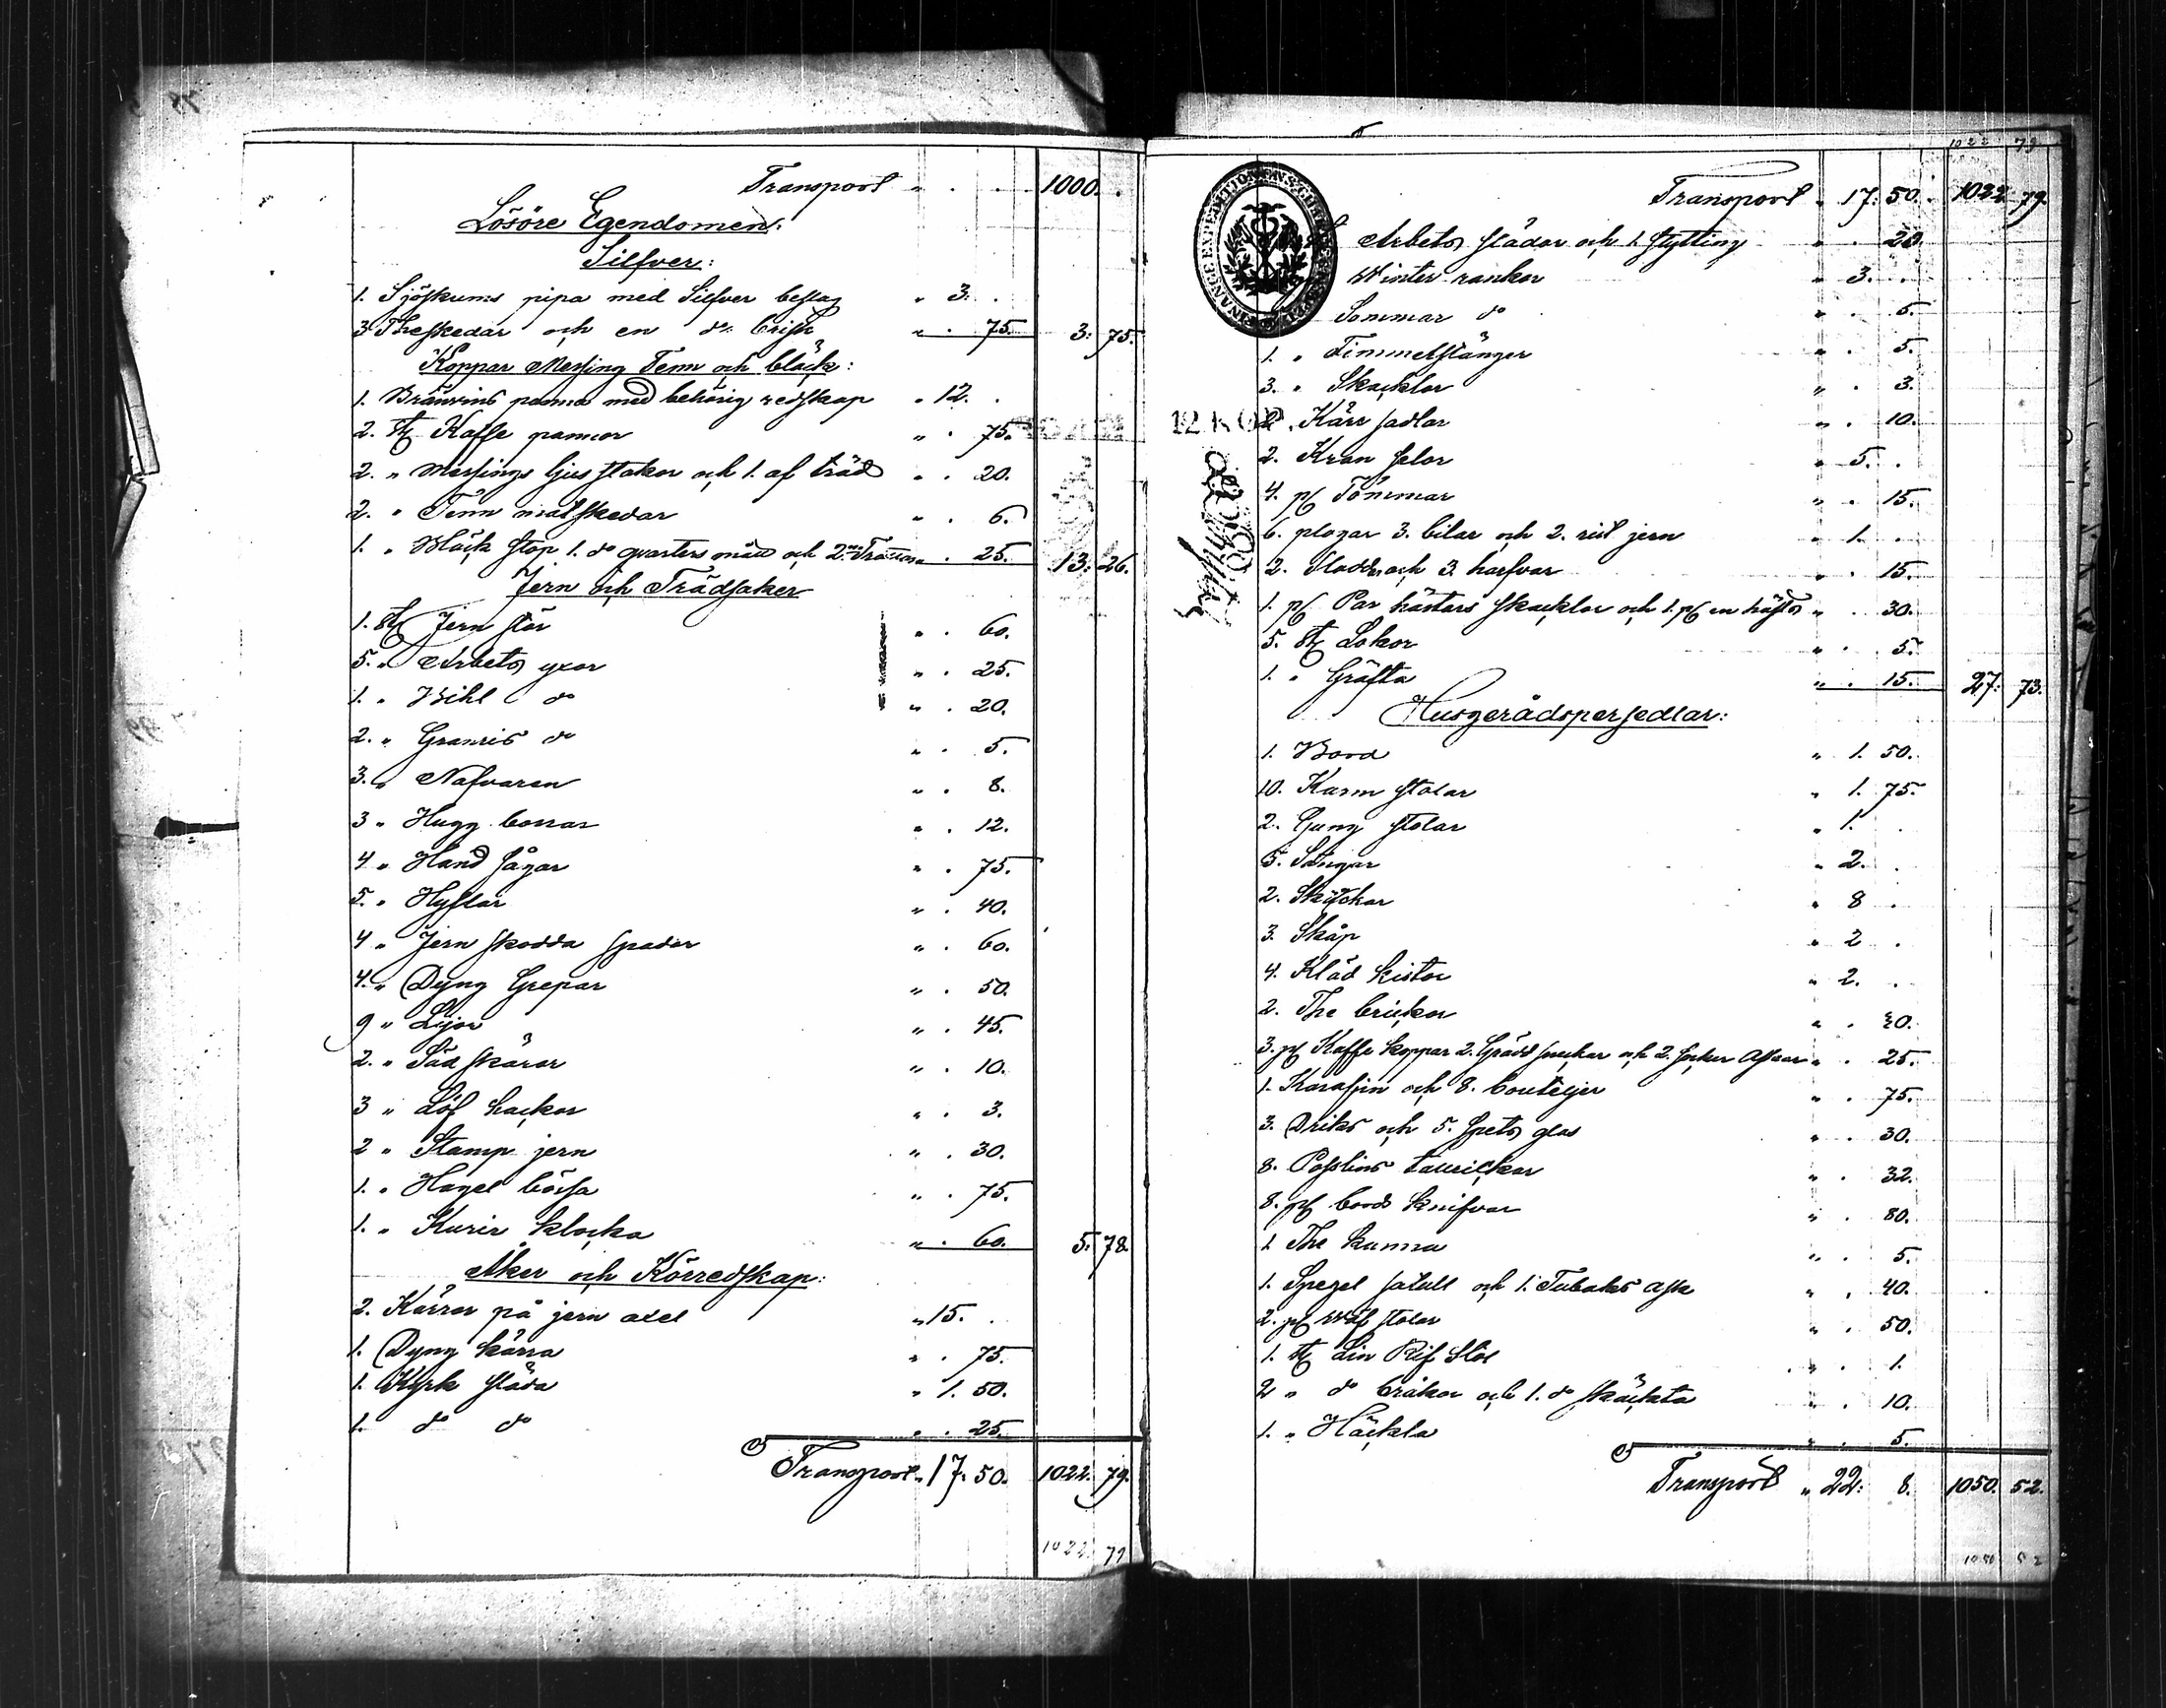 Transport " . . 1000. .
Lösöre Egendomen:
Silfver:
1. Sjöskums pipa med Silfver beslag " 3: .
3 Theskedar och en do brisk " . 75. 3: 75.
Koppar Messing Tenn och bläck:
1. Bränvins panna med behörig redskap " 12. .
2. st Kaffe pannor " . 75.
2. " Messings ljus stakar och 1. af träd " . 20.
2. " Tenn matskedar " . 6.
1. " Bläck stop 1. do qvarters mått och 2. " . 25. 13: 26.
Jern och Trädsaker
1. st Jern stör " . 60.
5. " Arbets yxor " . 25.
1. " Bihl do " . 20.
2. " Granris do " . 5.
3. " Nafvaren " . 8.
3 " Hugg borrar " . 12.
4 " Hand sågar " . 75.
5. " Hyflar " . 40.
4 " Jern skodda spadar " . 60.
4. " Dyng Grepar " . 50.
9 " Lijor " . 45.
2. " Säd skäror " . 10.
3 " Löf hackor " . 3.
2 " Stamp jern " . 30.
1. " Hagel bössa " . 75.
1. " Kurir klocka " . 60. 5: 78.
Åker och Körredskap:
2. Kärror på jern axel " 15. .
1. Dyng kärra " . 75.
1. Kyrk släda " 1. 50.
1. do do " . 25.
Transport " 17: 50. 1022. 79.
1022 79
1022 79
Transport " 17: 50. 1022 79.
FINANCE EXPEDITIONENS
Arbets slädar och 1. stytting " . 20.
Winter rankor " 3. .
Sommar do " . 5.
1. " Timmerstänger " . 5.
3. " Skacklor " . 3.
12 KOP
2. " Kärr sadlar " . 10.
2. Kran selor " 5. .
4. p Tömmar " . 15.
6. plogar 3. bilar och 2. rist jern " 1. .
2. Sladdor och 3. harfvar " . 15.
1. p Par hästars skacklor och 1. p en hästs " . 30.
5. st Lokor " . 5.
1. " Gräfta " . 15. 27: 73.
Husgerådspersedlar:
1. Bord " 1. 50.
10. Karm stolar " 1. 75.
2. Gung stolar " 1. .
5. Sängar " 2. .
2. " 8 .
3. Skåp " 2 .
4. Kläd kistor " 2. .
2. The brickor " . 20.
3. p Kaffe koppar 2. Grädd snickar och 2. socker Askar " . 25.
1. Karaffin och 8. bouteljer " . 75.
3. Driks och 5. spets glas " . 30.
8. Posslins tallrickar " . 32.
8. p bords knifvar " . 80.
1 The kanna " . 5.
1. Spegel satull och 1. Tobaks ask " . 40.
2. p Wäf stolar " . 50.
1. st Lin Rif stol " . 1.
2 " do bråkor och 1. do skäckta " . 10.
1. " Häckla " . 5.
Transport " 22: 8. 1050. 52.
1050 52